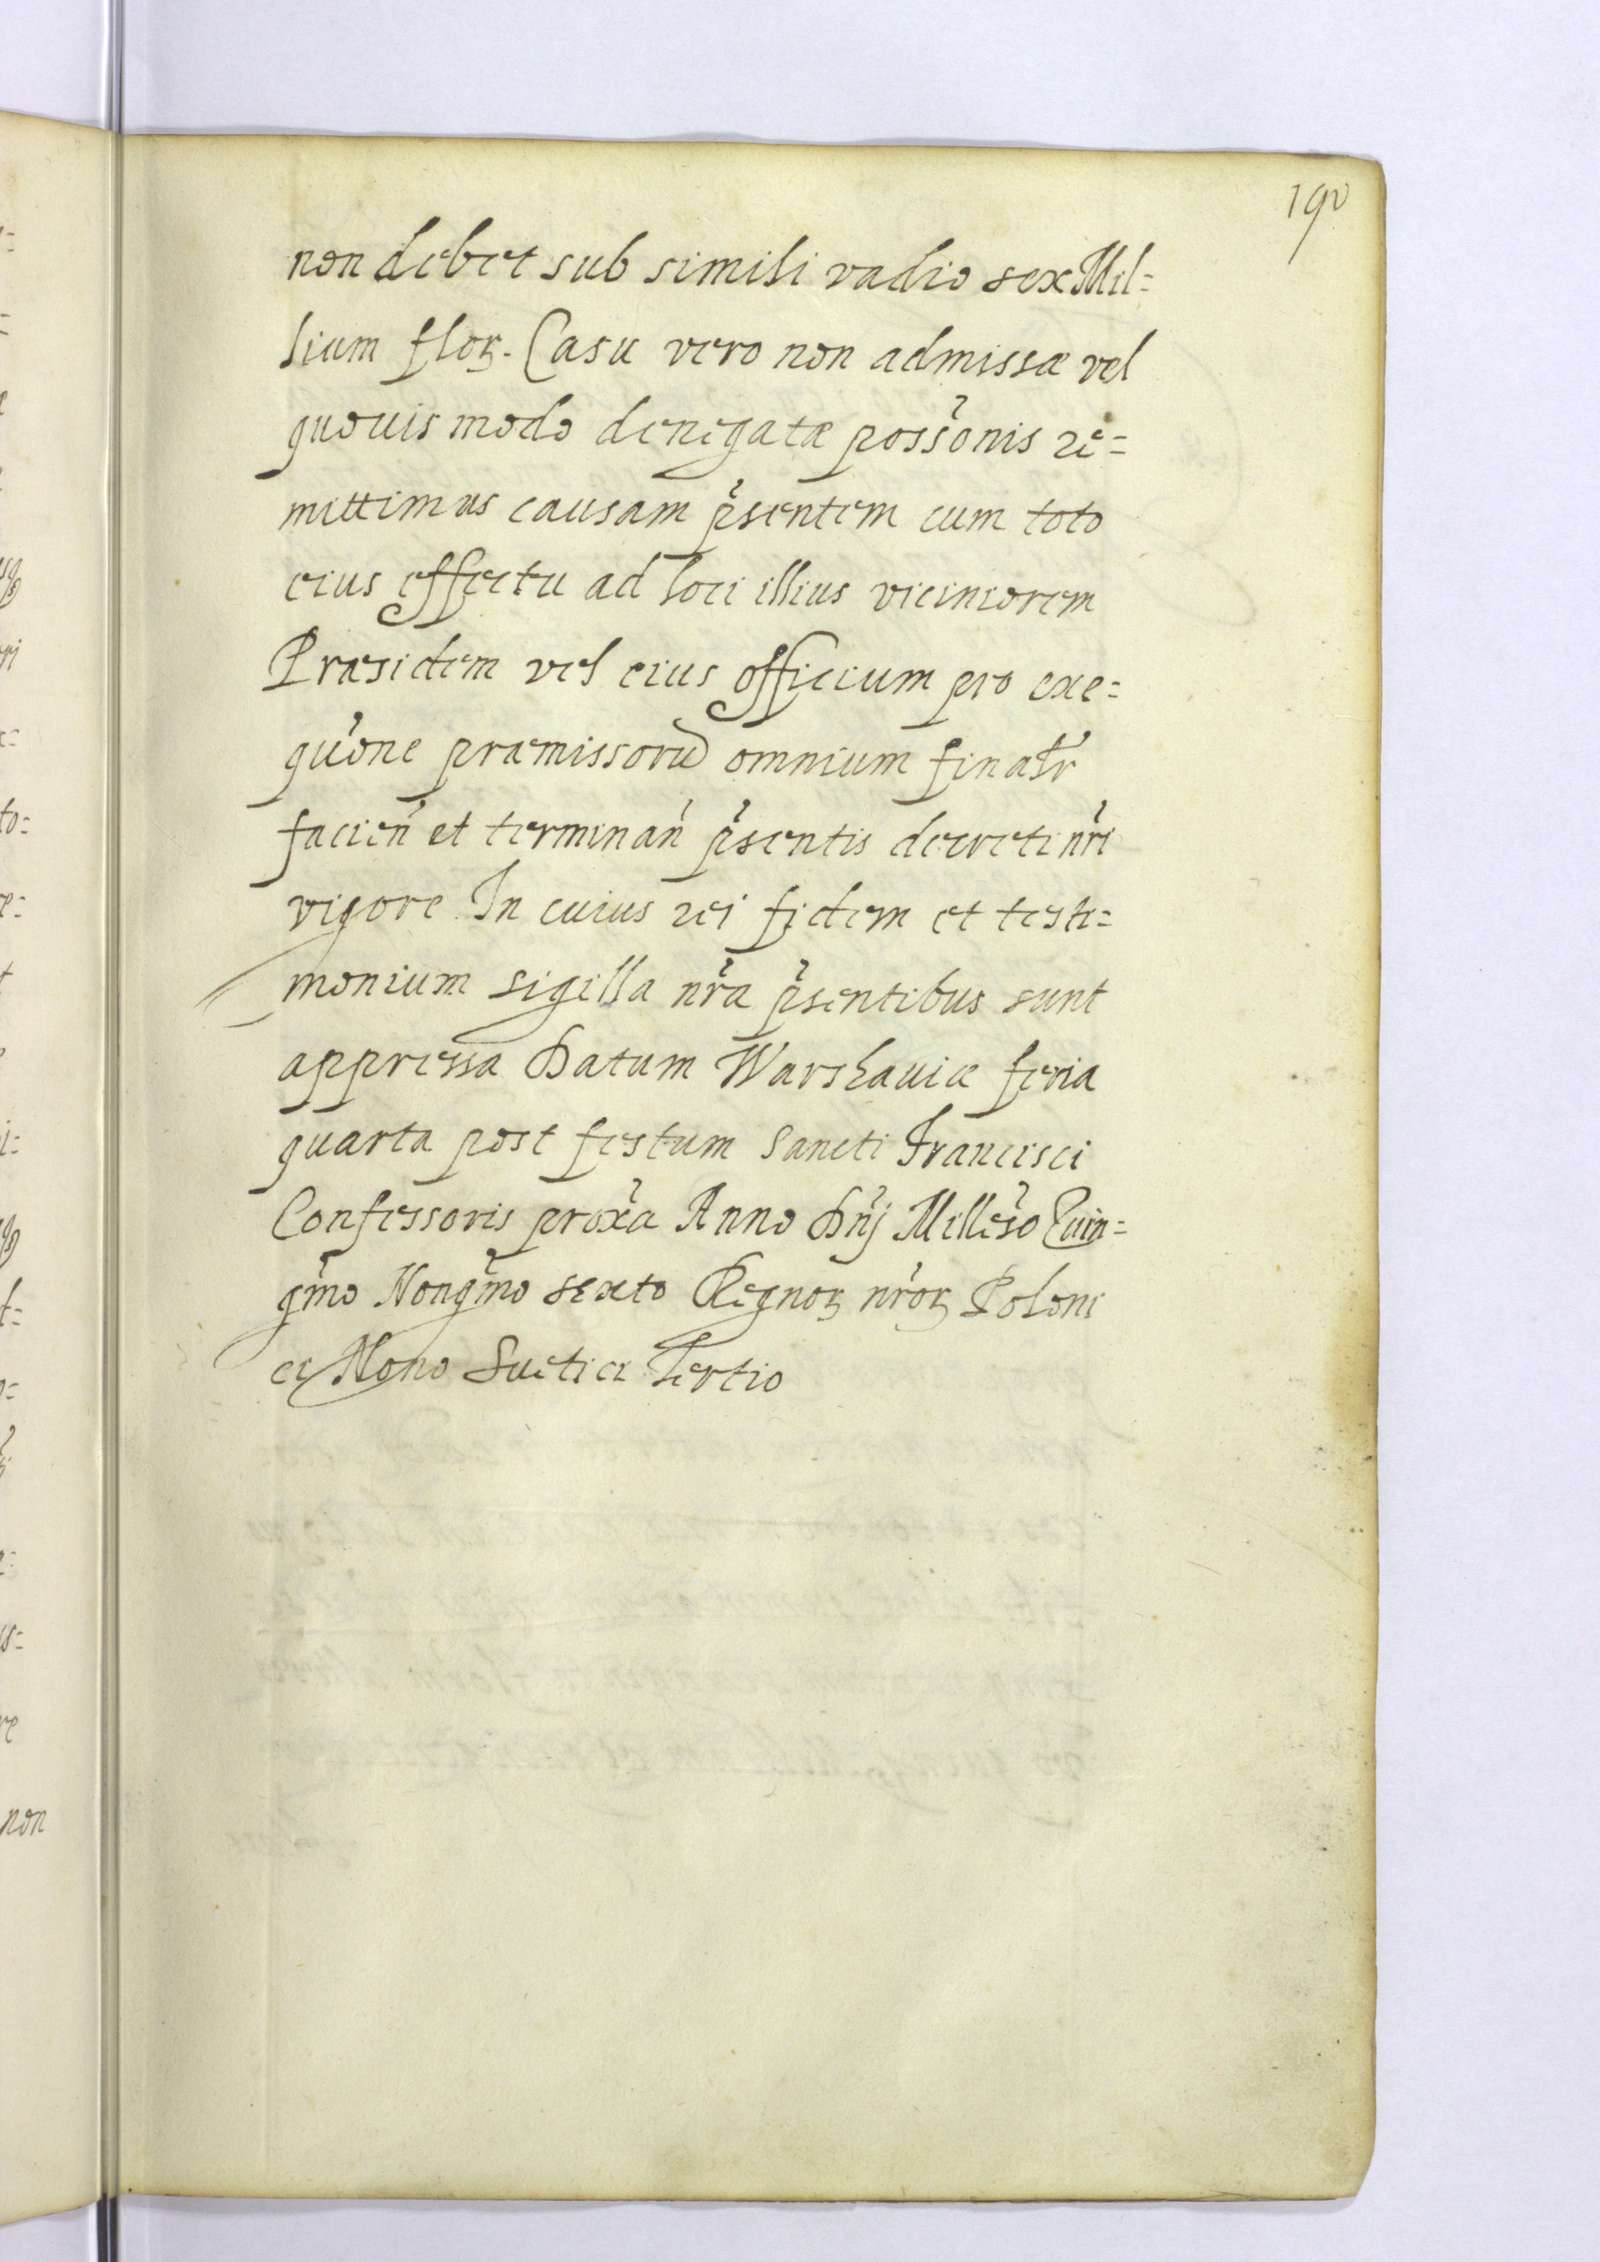 190
non debet sub simili vadio sex Mil=
lium flor. Casu vero non admissæ vel
quouis modo denegatæ poss̃onis re=
mittimus causam p̃sentem cum toto
eius effectu ad loci illius viciniorem
Præsidem vel eius officium pro exe=
qũone præmissorũ omnium finalr̃
facien̄ et terminan̄ p̃sentis decreti nr̃i
vigore In cuius rei fidem et testi=
monium sigilla nr̃a p̃sentibus sunt
appressa Datum Warshauiæ feria
quarta post festum Sancti Francisci
Confessoris prox̃a Anno Dñj Milles̃o Quin=
gm̃o Nongm̃o sexto Regnoꝝ nr̃oꝝ Poloni
ci Nono Suetici Tertio
non